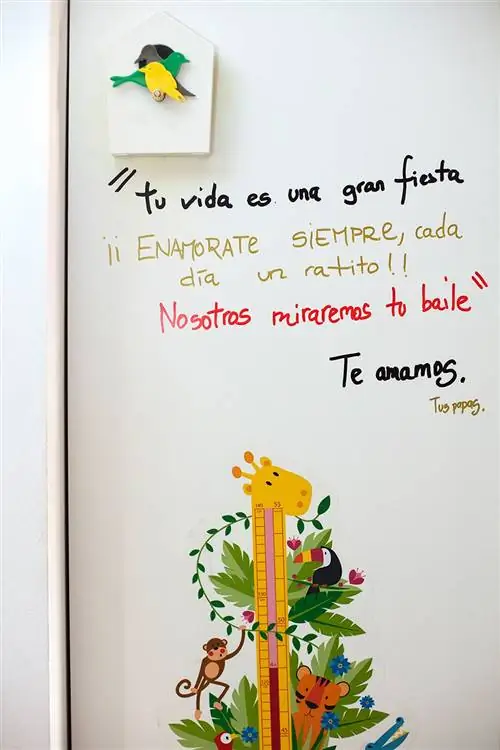 "tu vida es una gran fiesta
¡¡ ENAMORATE SIEMPRE, cada
día un ratito!!
Nosotros miraremos tu baile"
Te amamos.
Tus papas.
140 55